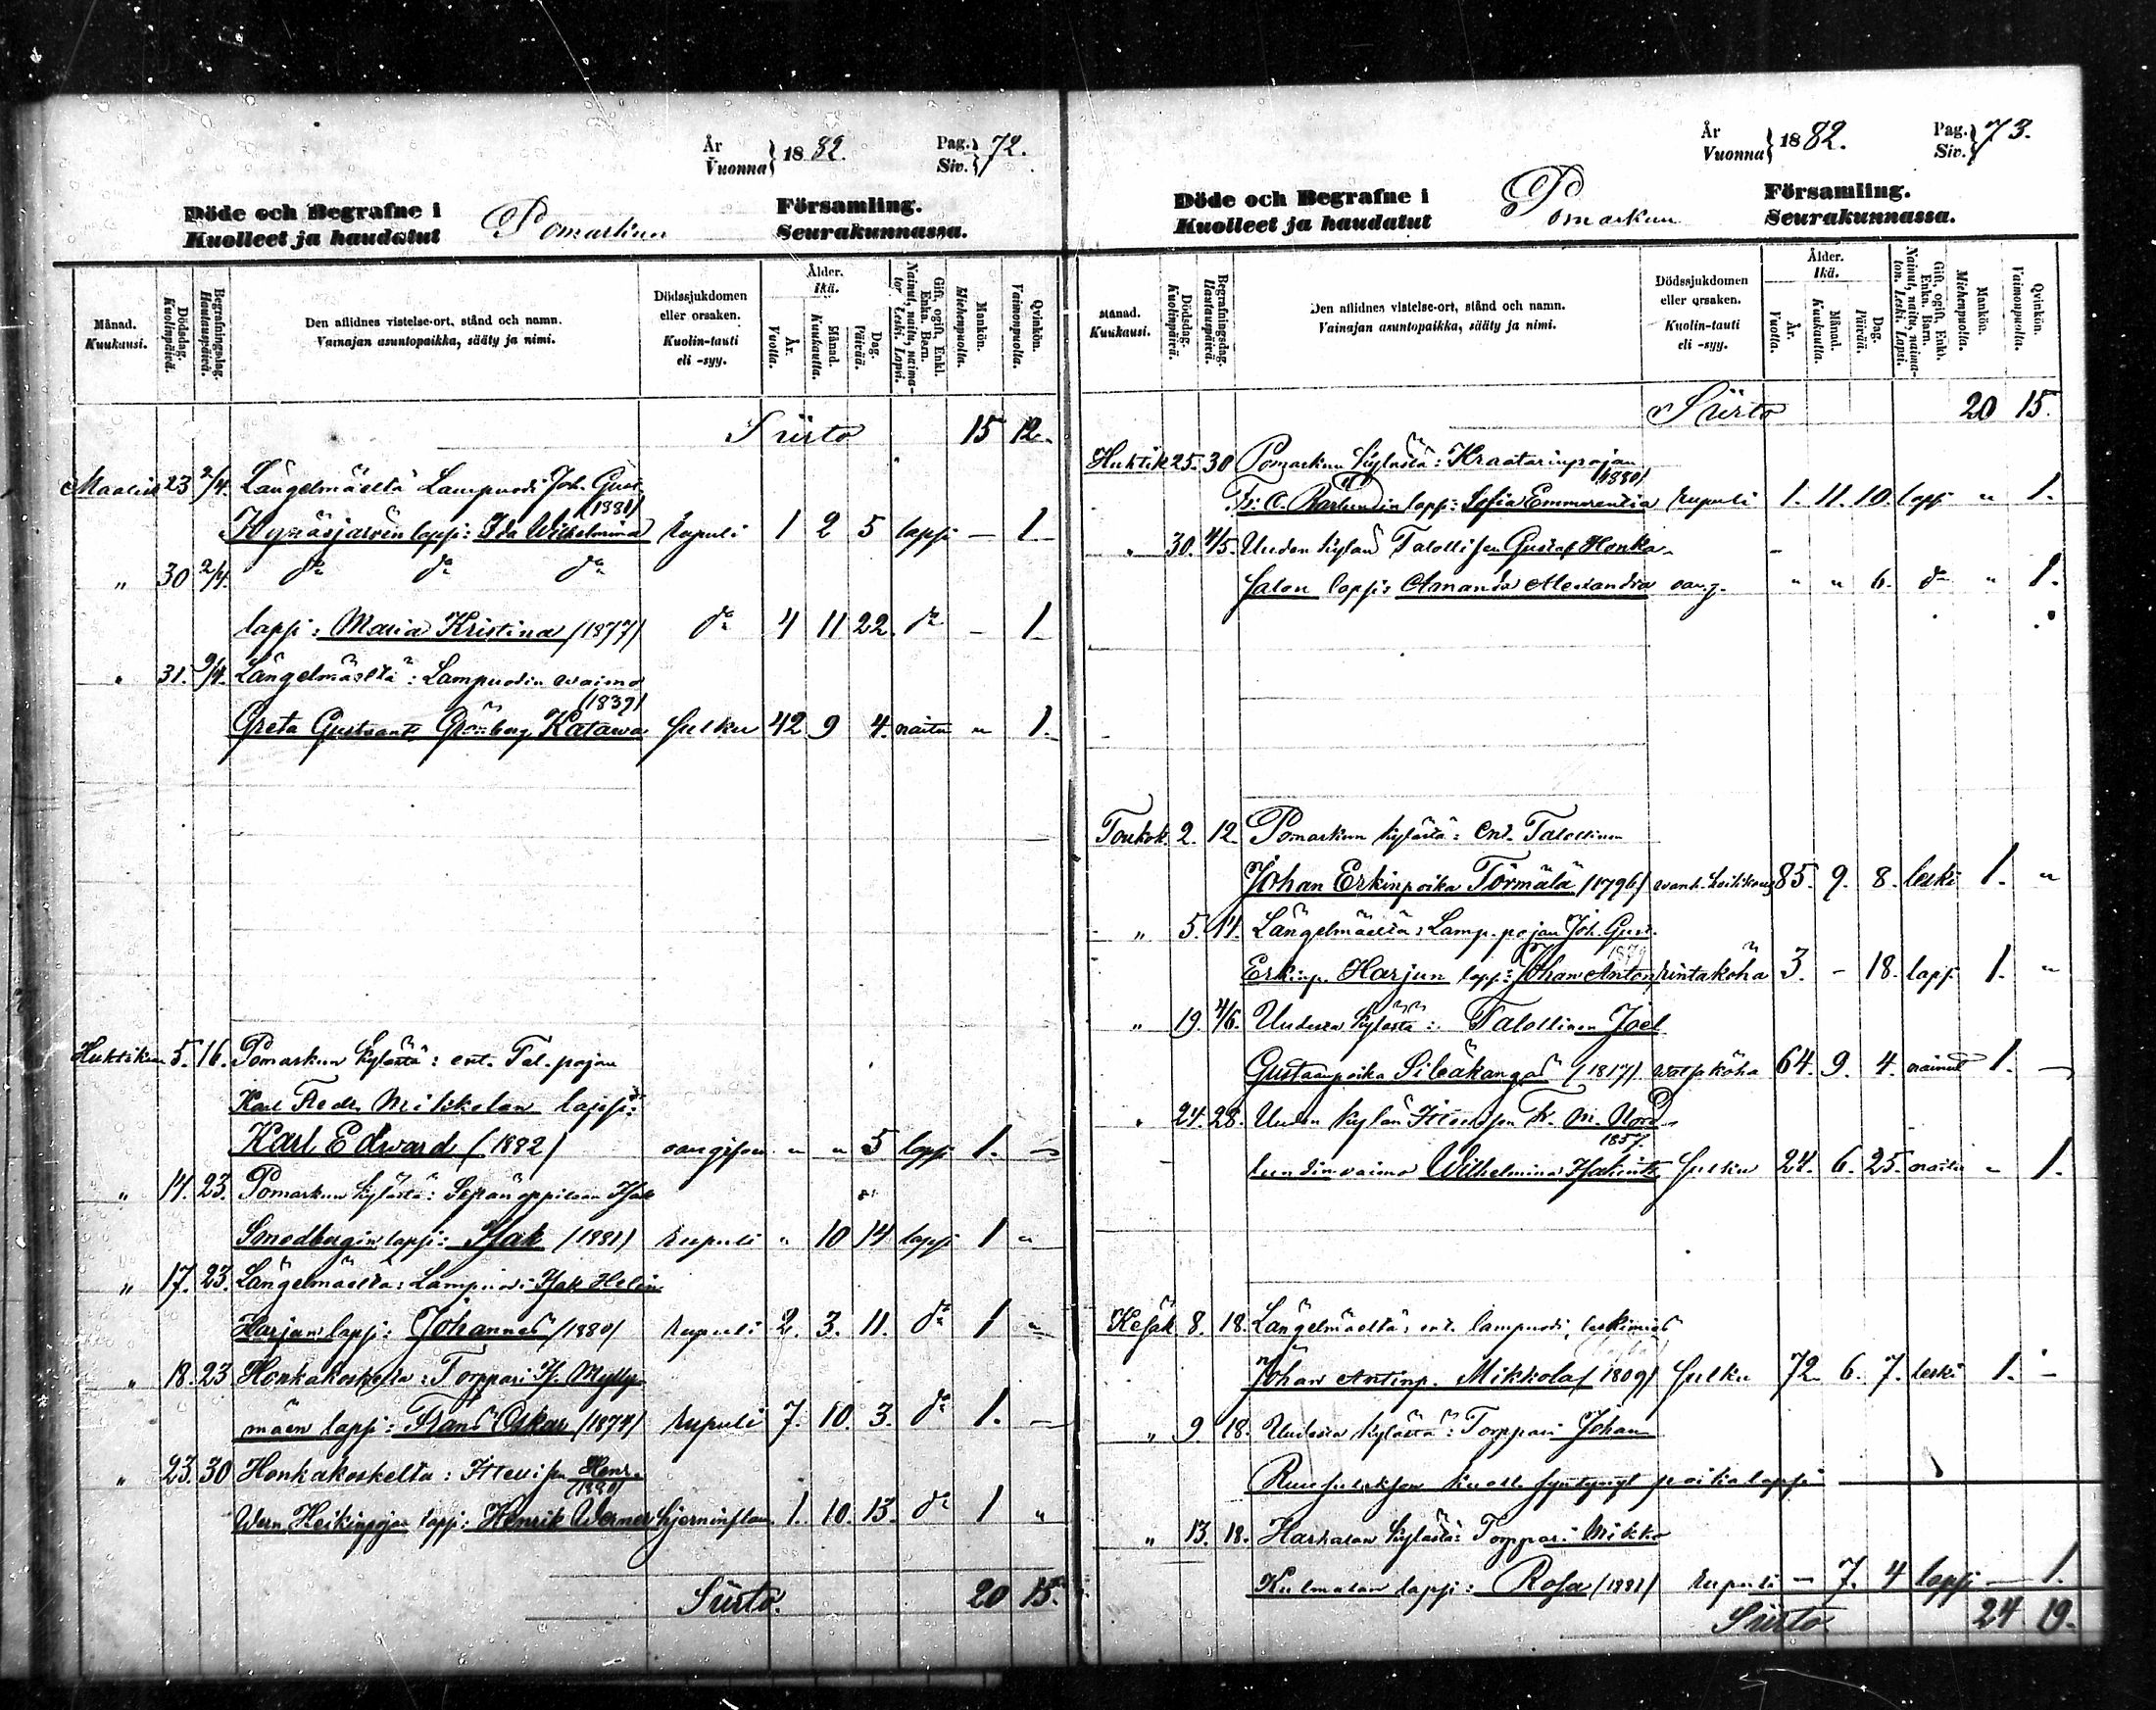 År
Vuonna } 1882. Pag. Siv. } 72.
Döde och Begrafne i Pomarkun Församling.
Kuolleet ja haudatut Seurakunnassa.
Månad. Kuukausi. Dödsdag. Kuolinpäivä. Begrafningsdag. Hautauspäivä. Den aflidnes vistelse-ort, stånd och namn. Vainajan asuntopaikka, sääty ja nimi. Dödssjukdomen eller orsaken. Kuolin-tauti eli -syy. Ålder. Ikä. År. Vuotta. Månad. Kuukautta. Dag. Päivää. Gift, ogift, Enkl. Enka. Barn. Nainut, naitu, naimaton. Leski. Lapsi. Mankön. Miehenpuolta. Qvinkön. Vaimonpuolta.
Siirto 15 12
Maalisk 23 2/4. Längelmäeltä Lampuodi Joh. Gust.
(1881)
lapsi: Ida Wilhelmina rupuli 1 2 5 lapsi — 1
„ 30 2/4. do do do
lapsi: Maria Kristina (1877) do 4 11 22 do — 1
„ 31. 9/4. Längelmäeltä: Lampuodin waimo
(1839)
Greta Grönberg Katawa sulku 42 9 4. naitu „ 1.
Huhtikuu 5. 16. Pomarkun kylästä: ent. Tal. pojan
Karl Fredr. Mikkolan lapsi:
Karl Edward (1882) „ „ 5 lapsi 1. —
„ 14. 23. Pomarkun kylästä: Sepänoppilaan Isak
Smedbergin lapsi: Isak (1881) rupuli „ 10 14 lapsi 1 „
„ 17. 23. Längelmäeltä: Lampuodi Isak Helin
Harjun lapsi: Johannes (1880) rupuli 2. 3. 11. do 1 „
„ 18. 23 Honkakoskelta: Torppari Is. Mylly-
mäen lapsi: Frans Oskar (1874) rupuli 7. 10. 3. do 1. —
„ 23. 30 Honkakoskelta: Itsellisen Henr.
(1880)
Wern Heikinpojan lapsi: Henrik Werner 1. 10. 13. do 1 „
Siirto. 20 15.
År
Vuonna } 1882. Pag. Siv. } 73.
Döde och Begrafne i Pomarkun Församling.
Kuolleet ja haudatut Seurakunnassa.
Månad. Kuukausi. Dödsdag. Kuolinpäivä. Begrafningsdag. Hautauspäivä. Den aflidnes vistelse-ort, stånd och namn. Vainajan asuntopaikka, sääty ja nimi. Dödssjukdomen eller orsaken. Kuolin-tauti eli -syy. Ålder. Ikä. År. Vuotta. Månad. Kuukautta. Dag. Päivää. Gift, ogift, Enkl. Enka. Barn. Nainut, naitu, naimaton. Leski. Lapsi. Mankön. Miehenpuolta. Qvinkön. Vaimonpuolta.
Siirto 20 15.
Huhtik 25. 30 Pomarkun kylästä: Kraatarinpojan
(1880)
lapsi: Sofia Emmerentia rupuli 1. 11. 10. lapsi „ 1.
„ 30. 4/5. Uuden kylän Talollisen Gustaf Honka-
salon lapsi: Amanda Alexandra „ „ 6. do „ 1.
Toukok. 2. 12. Pomarkun kylästä: ent. Talollinen
Johan Erkinpoika Törmälä (1796) 85. 9. 8. leski 1. „
„ 5. 14. Längelmäeltä: Lamp. pojan Joh. Gust.
Erkinp. Harjun lapsi: Johan Anton rintakoha 3. – 18. lapsi 1. „
„ 19. 4/6. Uudesta kylästä: Talollinen Joel
Gustaanpoika Siltakangas (1817) 64. 9. 4. nainut 1. —
„ 24. 28. Uuden kylän Itsellisen Fr. M. Nord-
1857.
lundin vaimo Wilhelmina sulku 24. 6. 25. naitu „ 1.
Kesäk 8. 18. Längelmäeltä, ent. lampuodi, leskimies
Johan Antinp. Mikkola (1809) sulku 72 6. 7. leski 1. —
„ 9. 18. Uudesta kylästä: Torppari Johan
kuoll. syntynyt poikalapsi
„ 13. 18. kylästä: Torppari Mikko
Kulmalan lapsi: Rosa (1881) rupuli — 7. 4 lapsi — 1.
Siirto. 24 19.